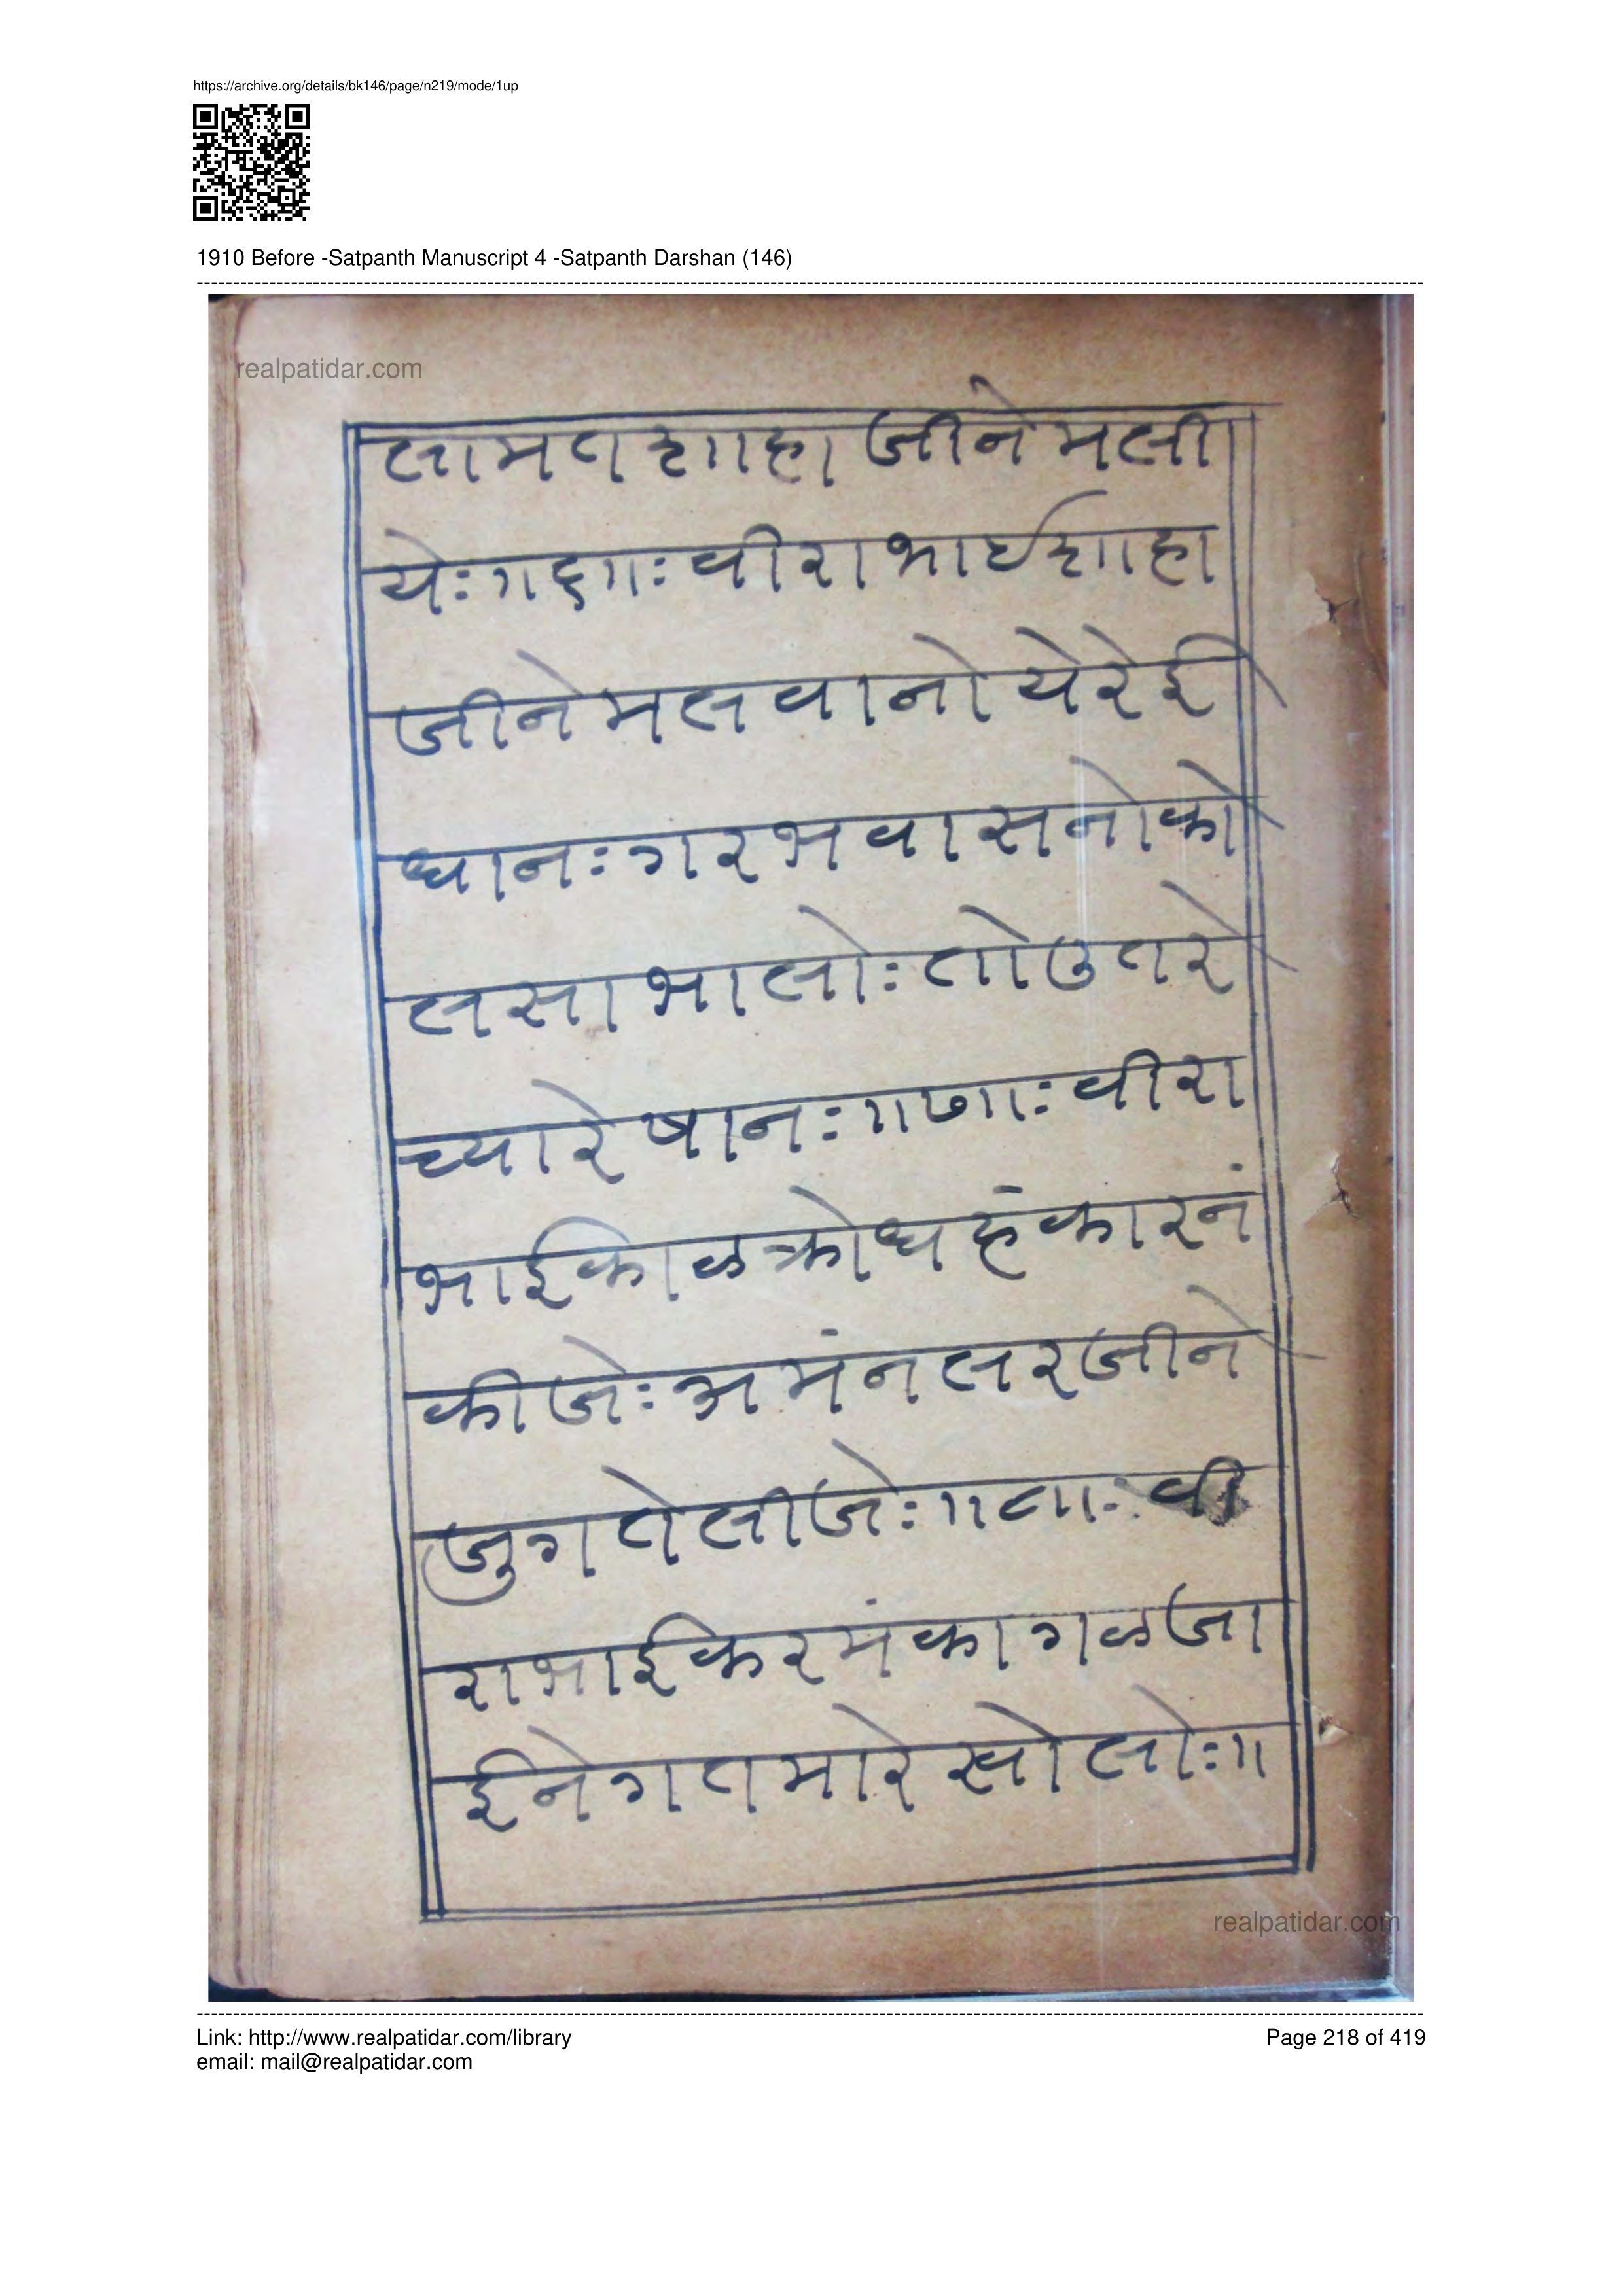 https://archive.org/details/bk146/page/n219/mode/1up
1910 Before -Satpanth Manuscript 4 -Satpanth Darshan (146)
realpatidar.com
लामत शाहा जीने मली
येः ॥६॥ः वीरा भाई शाहा
जीने मलवानो येरे ई
धानः गरभ वासनो को
लसा भालोः तो उतरे
च्यारे षानः ॥७॥ः वीरा
भाई काळ क्रोध हंकार नं
कीजेः अमंनल रजीने
जुगते लीजेः ॥८॥ः वी
रा भाई करमं कागळ जा
ईने गत मारे खोलोः॥
realpatidar.com
Link: http://www.realpatidar.com/library
Page 218 of 419
email: mail@realpatidar.com